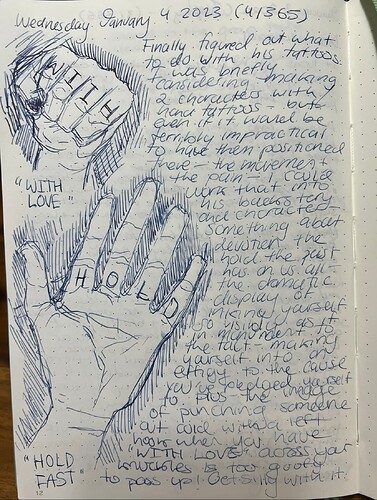 Wednesday January 4 2023 (4/365)
Finally figured out what
to do with his tattoos.
I was briefly
considering making
2 characters with
hand tattoos - but
even if it would be
terribly impractical
to have them positioned
there - the movement
the pain - I could
work that into
his backstory
and character
Something about
devotion, the
hold the past
has on us all -
the dramatic
display of
inking yourself
so visibly as if
in monument to
the fact - making
yourself into an
effigy to the cause
you've pledged yourself
to, plus the image
of punching someone
out cold with a left
hook when you have
"WITH LOVE" across your
knuckles is too good
to pass up! Get silly with it.
WITH
"WITH
LOVE"
HOLD
"HOLD
FAST"
12